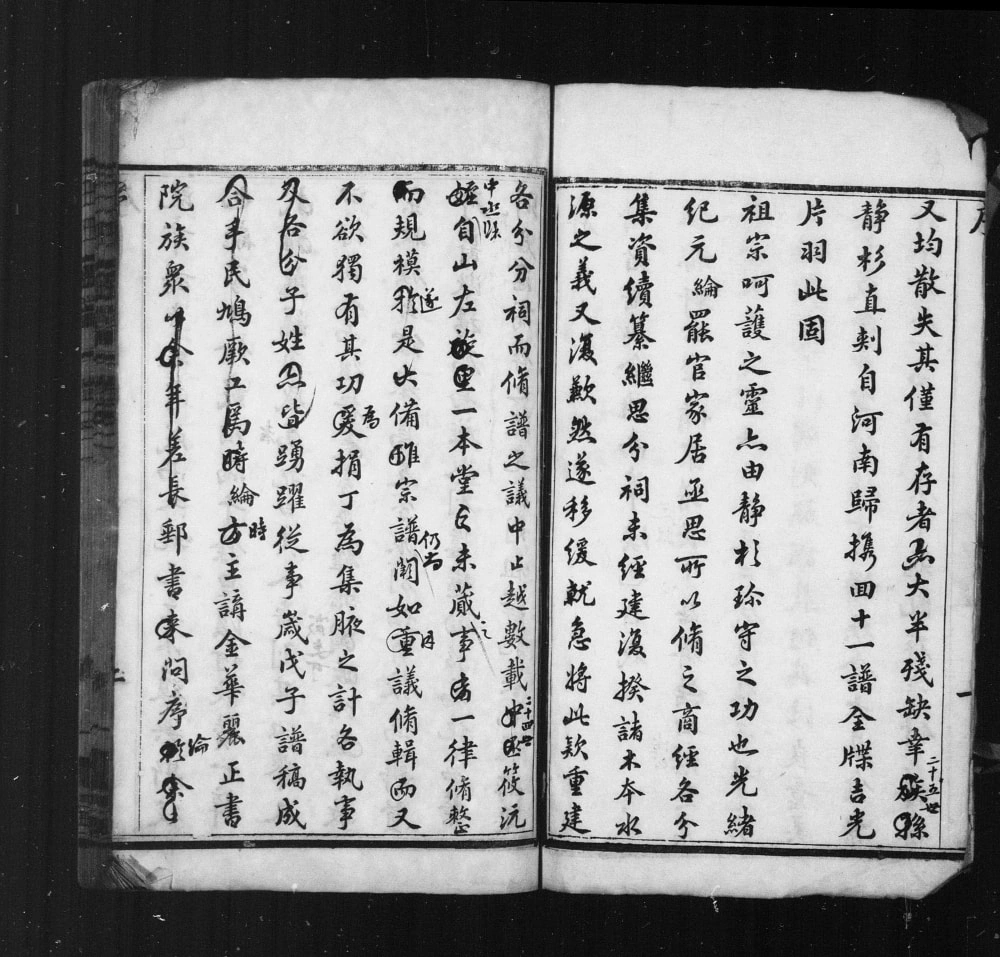 序
又均散失其僅有存者大半殘缺幸二十五世族孫
靜杉直刺自河南歸携回十一譜金牒吉光
片羽此固
祖宗呵護之靈亦由靜杉珍守之功也光緒
紀元綸罷官家居亟思所以脩之商經各分
集資續纂繼思分祠未經建復揆諸木本水
源之義又復歉然遂移緩就急將此欵重建
各分分祠而脩譜之議中止越數載二十四世筱沅
中丞姪自山左旋里一本堂已未蕆事者一律脩整
而規模遂是大備雖宗譜仍尚闕如重議脩輯而又
不欲獨有其功爰為捐丁為集腋之計各執事
及各分子姓皆踴躍從事歲戊子譜稿成
合手民鳩厥工焉時綸方主講金華麗正書
院族衆年差長郵書來問序綸